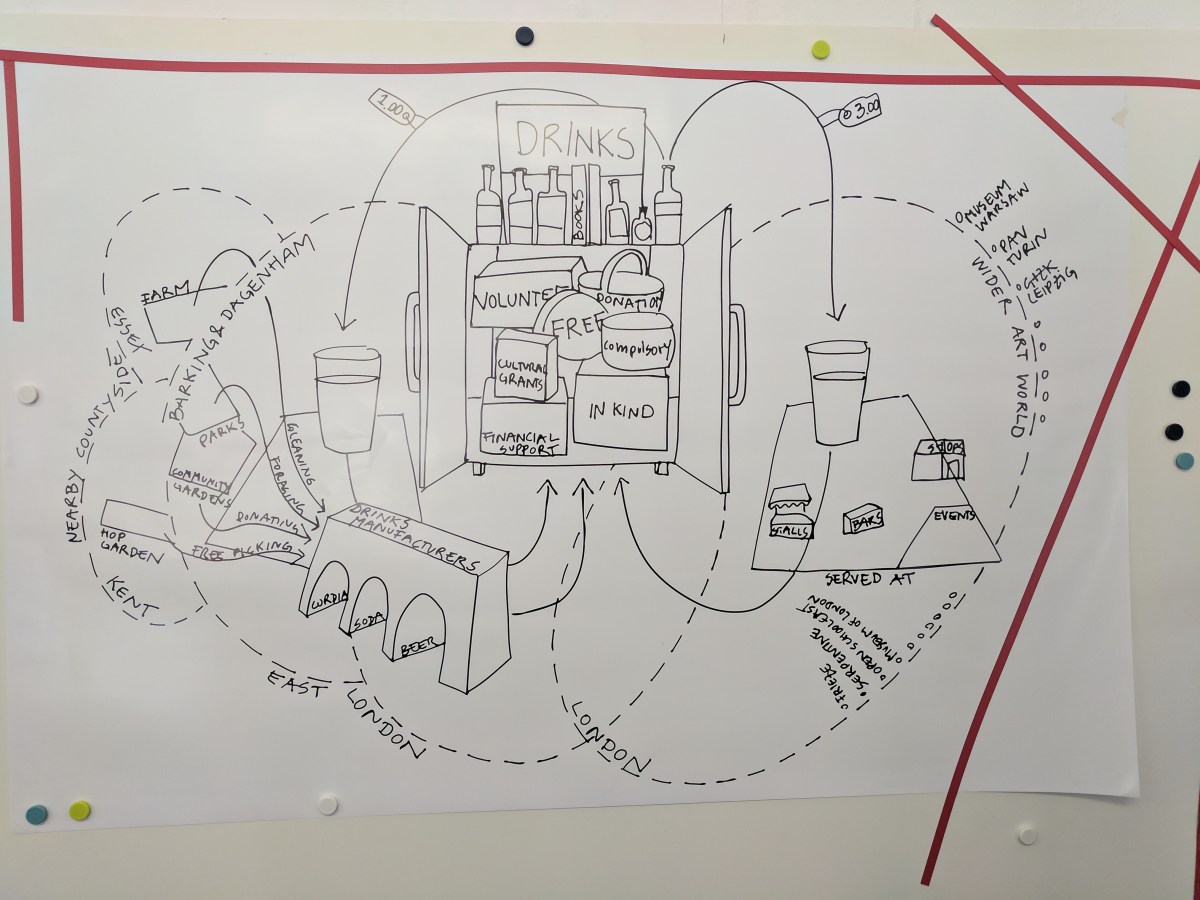 1.00
3.00
DRINKS
BOOKS
MUSEUM
WARSAW
PAV
TURIN
GFZK
LEIPZIG
WIDER ART WORLD
VOLUNTEE
DONATION
FREE
COMPULSORY
CULTURAL
GRANTS
IN KIND
FINANCIAL
SUPPORT
FARM
ESSEX
BARKING & DAGENHAM
NEARBY COUNTYSIDE
PARKS
COMMUNITY
GARDENS
HOP
GARDEN
KENT
GLEANING
FORAGING
DONATING
FREE PICKING
DRINKS
MANUFACTURERS
CORDIA
SODA
BEER
EAST LONDON
LONDON
SHOPS
STALLS
BARS
EVENTS
SERVED AT
MUSEUM OF LONDON
OPEN SCHOOL EAST
SERPENTINE
FRIEZE